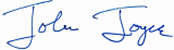 John Joyce